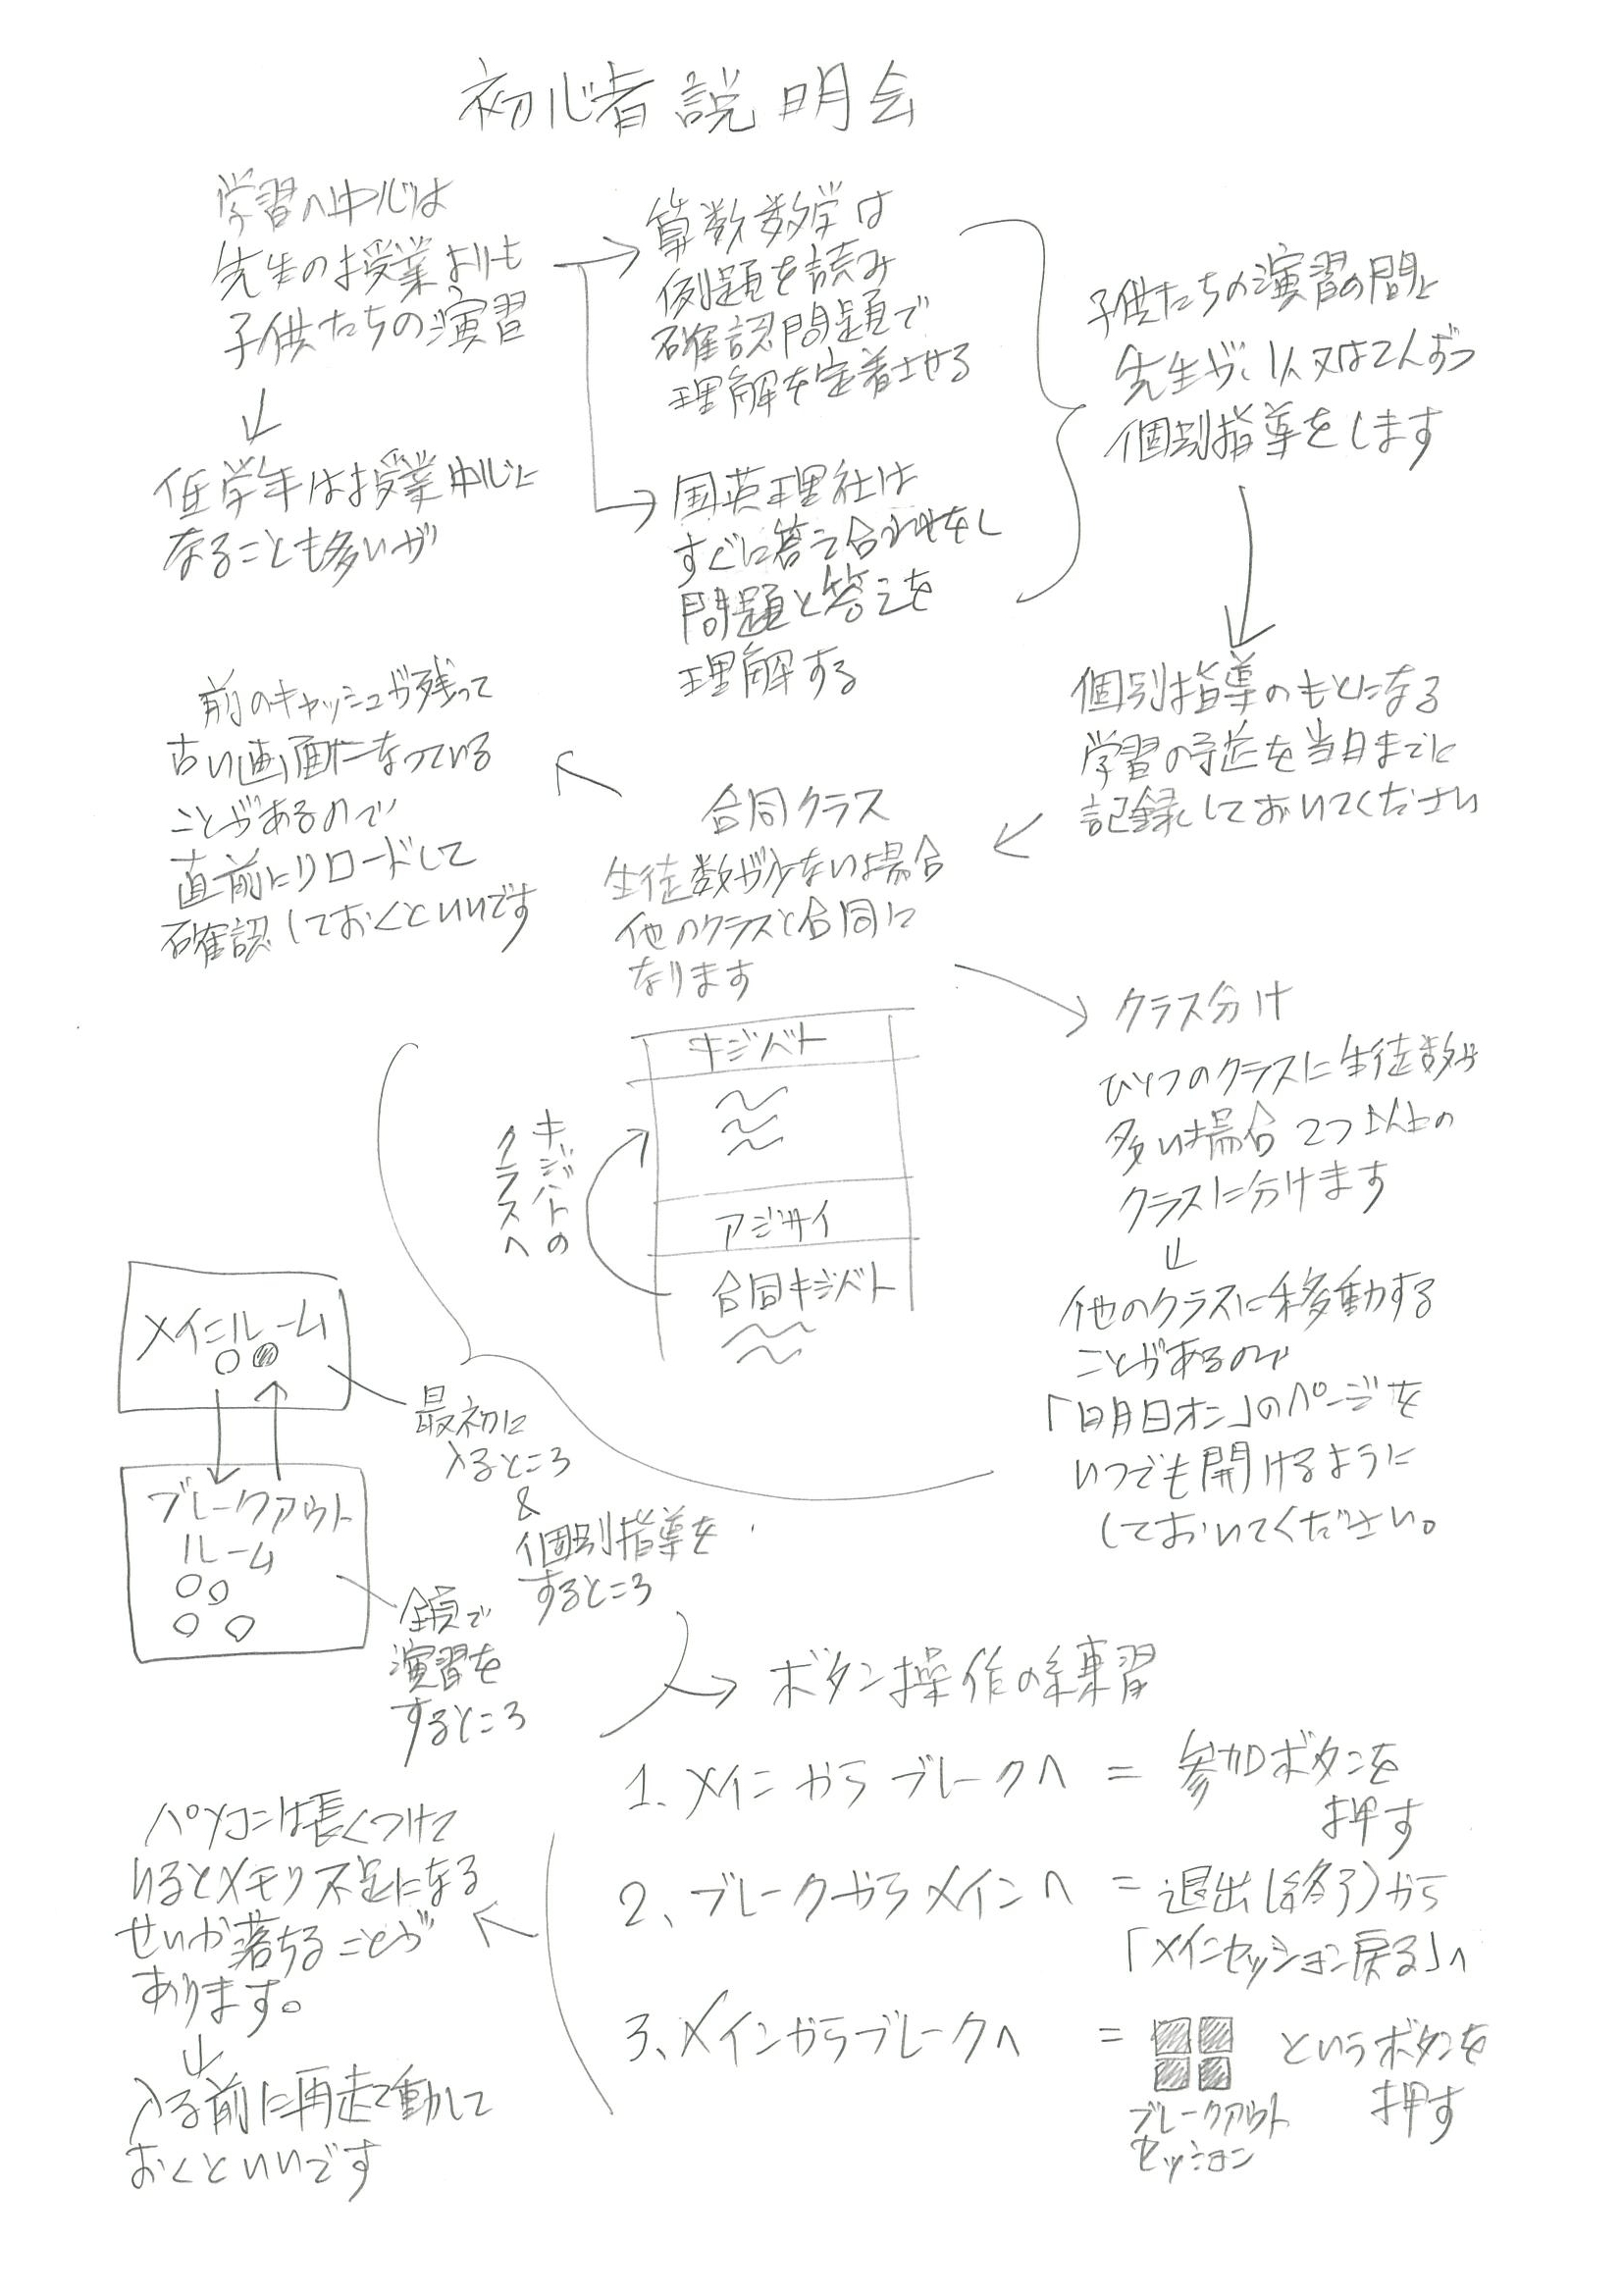 初心者説明会
学習の中心は
先生のお授業よりも
子供たちの演習
低学年はお授業中心に
なることも多いが
算数数学は
例題を読み
確認問題で
理解を定着させる
国英理社は
すぐに答え合わせをし
問題と答えを
理解する
子供たちの演習の間に
先生が、1人又は2人ずつ
個別指導をします
個別指導のもとになる
学習の予定を当日までに
記録しておいてください
合同クラス
生徒数が少ない場合
他のクラスと合同に
なります
前のキャッシュが残って
古い画面になっている
ことがあるので
直前にリロードして
確認しておくといいです
キジバト
アジサイ
合同キジバト
キジバトの
クラスへ
クラス分け
ひとつのクラスに生徒数が
多い場合2つ以上の
クラスに分けます
他のクラスに移動する
ことがあるので
「日月日オン」のページを
いつでも開けるように
しておいてください。
メインルーム
最初に
入るところ
&
個別指導を
するところ
ブレークアウト
ルーム
全員で
演習を
するところ
ボタン操作の練習
1. メインからブレークへ = 参加ボタンを
押す
2、ブレークからメインへ = 退出(終了)から
「メインセッション戻る」へ
3、メインからブレークへ = というボタンを
押す
ブレークアウト
セッション
パソコンは長くつけて
いるとメモリ不足になる
せいか落ちることが
あります。
入る前に再起動して
おくといいです